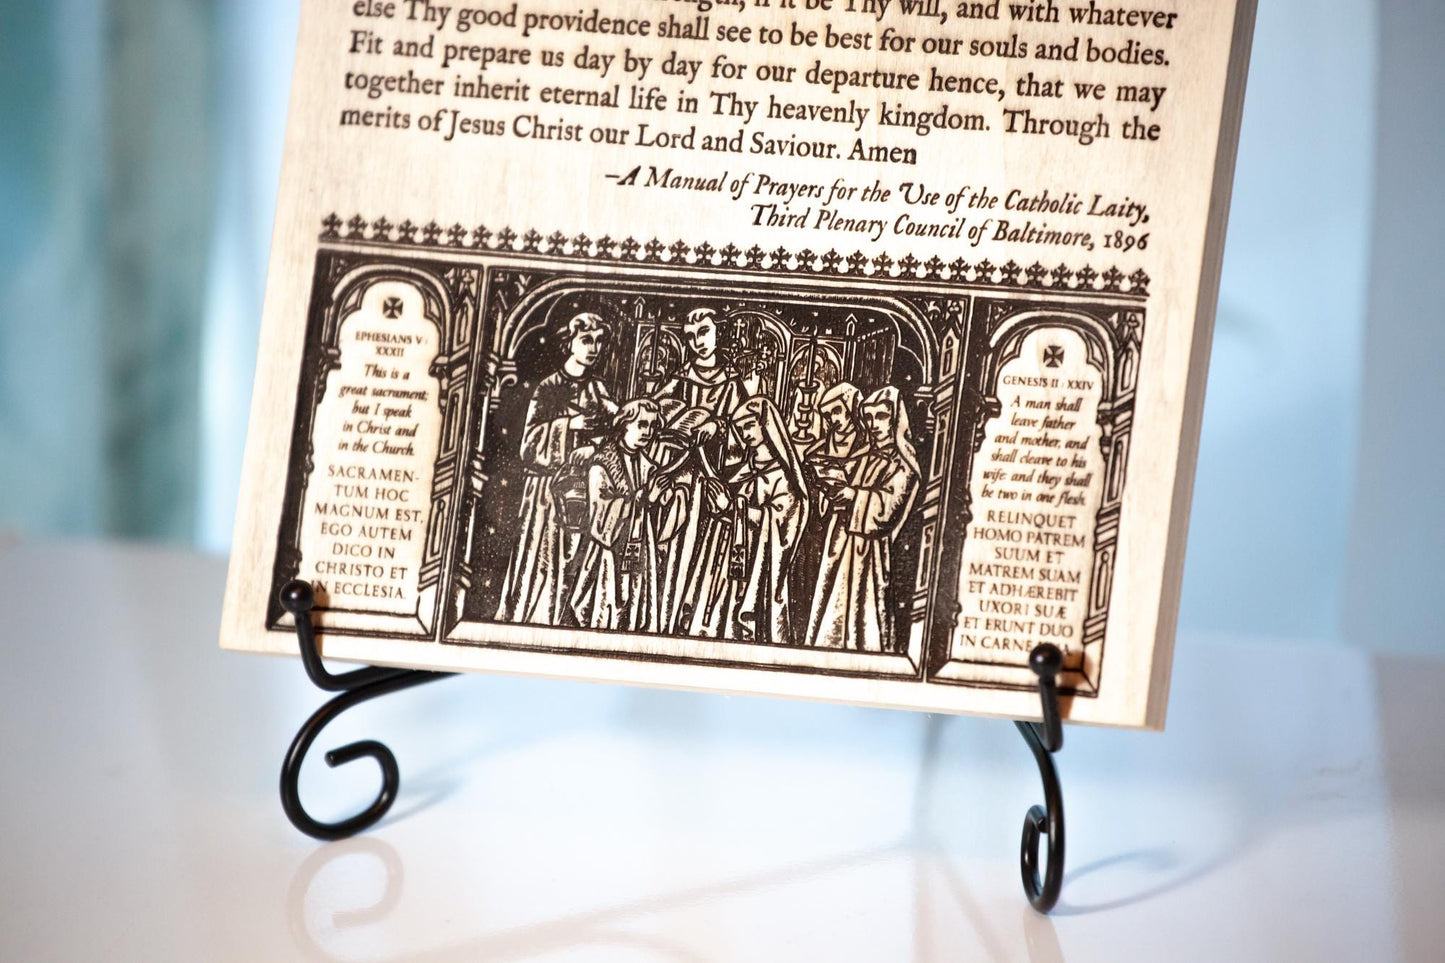 if it be Thy will, and with whatever
else Thy good providence shall see to be best for our souls and bodies.
Fit and prepare us day by day for our departure hence, that we may
together inherit eternal life in Thy heavenly kingdom. Through the
merits of Jesus Christ our Lord and Saviour. Amen
–A Manual of Prayers for the Use of the Catholic Laity,
Third Plenary Council of Baltimore, 1896
EPHESIANS V:
XXXII
This is a
great sacrament;
but I speak
in Christ and
in the Church.
SACRAMEN-
TUM HOC
MAGNUM EST,
EGO AUTEM
DICO IN
CHRISTO ET
IN ECCLESIA.
GENESIS II : XXIV
A man shall
leave father
and mother, and
shall cleave to his
wife: and they shall
be two in one flesh.
RELINQUET
HOMO PATREM
SUUM ET
MATREM SUAM
ET ADHÆREBIT
UXORI SUÆ
ET ERUNT DUO
IN CARNE